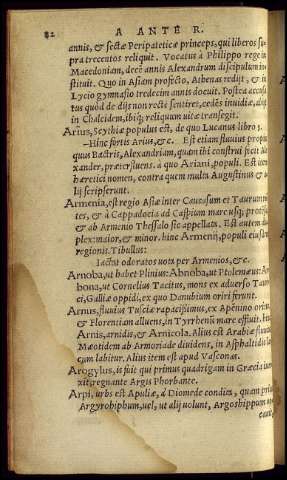 82 A ANTE R.
annis, & sectæ Peripateticæ princeps, qui liberos su
pra trecentos reliquit. Vocatus à Philippo rege in
Macedoniam, decē annis Alexandrum discipulum in
stituit. Quo in Asiam profecto, Athenas redijt, & in
Lycio gymnasio tredecim annis docuit. Postea accusa
tus quòd de dijs non rectè sentiret, cedēs inuidiæ, abijt
in Chalcidem, ibiq; reliquum uitæ transegit.
Arius, Scythiæ populus est, de quo Lucanus libro 3.
—Hinc fortis Arius, &c. Est etiam fluuius propin
quus Bactris, Alexandriam, quam ibi construi fecit Ale
xander, præterfluens. à quo Ariani, populi. Est item
hæretici nomen, contra quem multa Augustinus & a
lij scripserunt.
Armenia, est regio Asiæ inter Caucasum et Taurum mō
tes, & à Cappadocia ad Caspium mare usq; protēsa,
& ab Armenio Thessalo sic appellata. Est autem du
plex: maior, & minor. hinc Armenij, populi eiusdē
regionis. Tibullus:
Iactat odoratos uota per Armenios, &c.
Arnoba, ut habet Plinius: Abnoba, ut Ptolemæus: Ar
bona, ut Cornelius Tacitus, mons ex aduerso Taura
ci, Galliæ oppidi, ex quo Danubium oriri ferunt.
Arnus, fluuius Tusciæ rapacissimus, ex Apenino oriens,
& Florentiam alluens, in Tyrrhenū mare effluit. hinc
Arnis, arnidis, & Arnicola. Alius est Arabiæ fluuius
Mæotidem ab Armoriade diuidens, in Asphaltidē la
cum labitur. Alius item est apud Vascones.
Arogylus, is fuit qui primus quadrigam in Græcia iun
xit, regnante Argis Phorbante.
Arpi, urbs est Apuliæ, à Diomede condita, quam prius
Argyrohippum, uel, ut alij uolunt, Argoshippon uo
caue